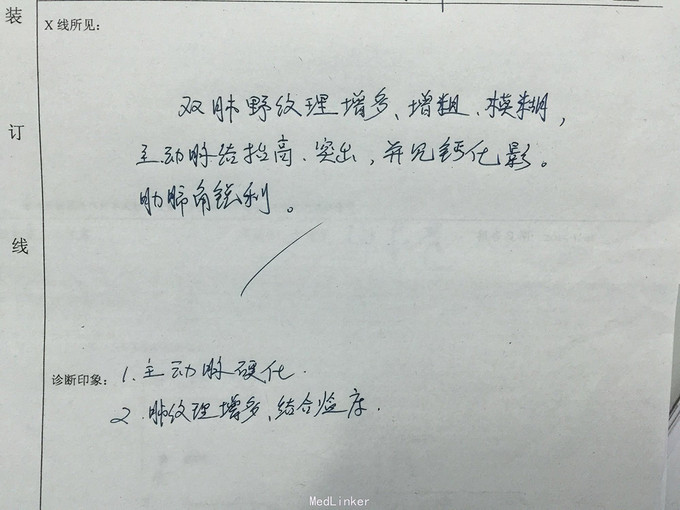 装
订
线
X线所见:
双肺野纹理增多、增粗、模糊,
主动脉结抬高、突出,并见钙化影。
肋膈角锐利。
诊断印象: 1.主动脉硬化.
2.肺纹理增多、结合临床.
MedLinker